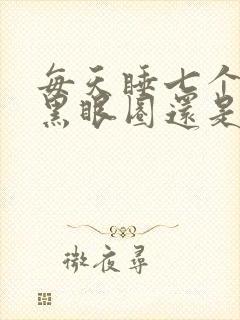 每天睡七个
黑眼圈還是
微夜尋